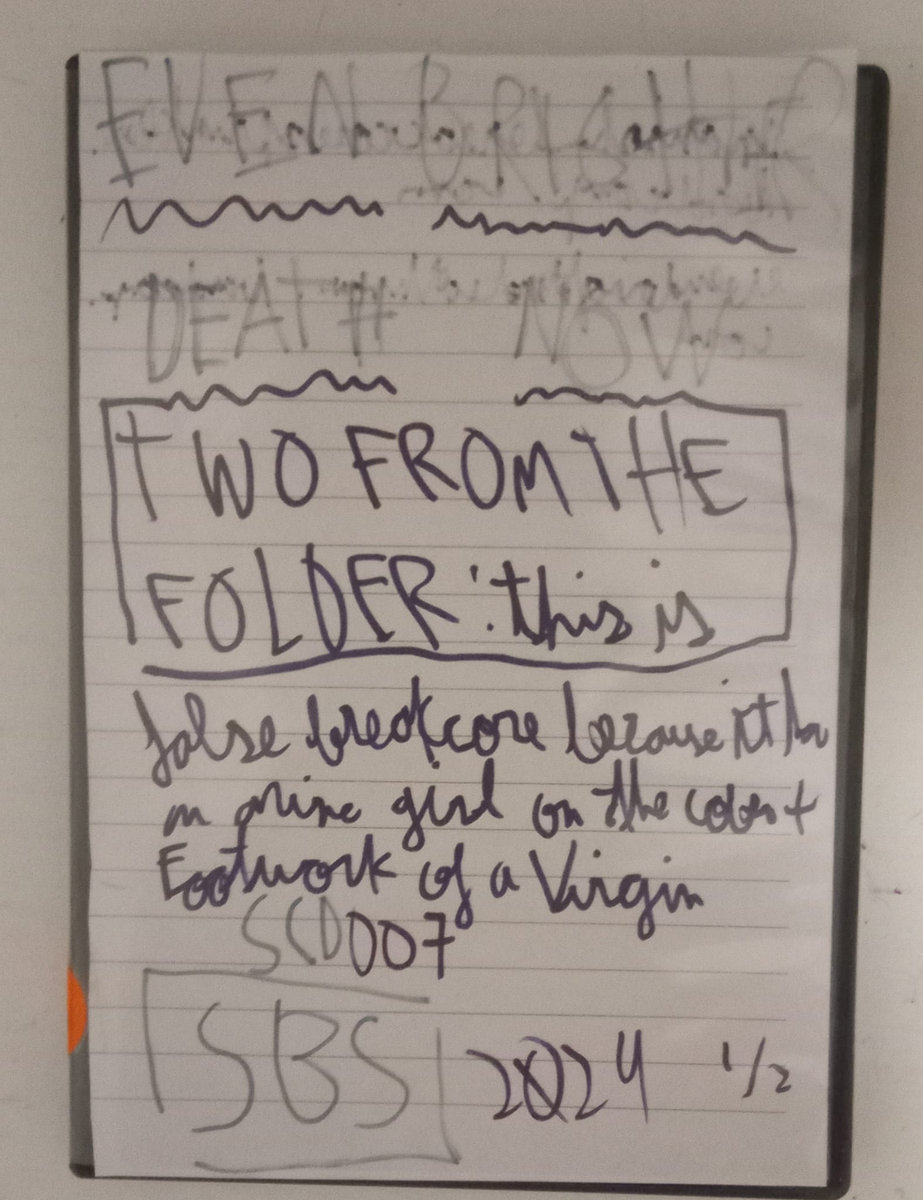 EVEN BRIGHTER
DEATH NOW
TWO FROM THE
FOLDER: this is
false breakcore because it ha
on the
Footwork of a Virgin
SCD007
SBS 2024 1/2